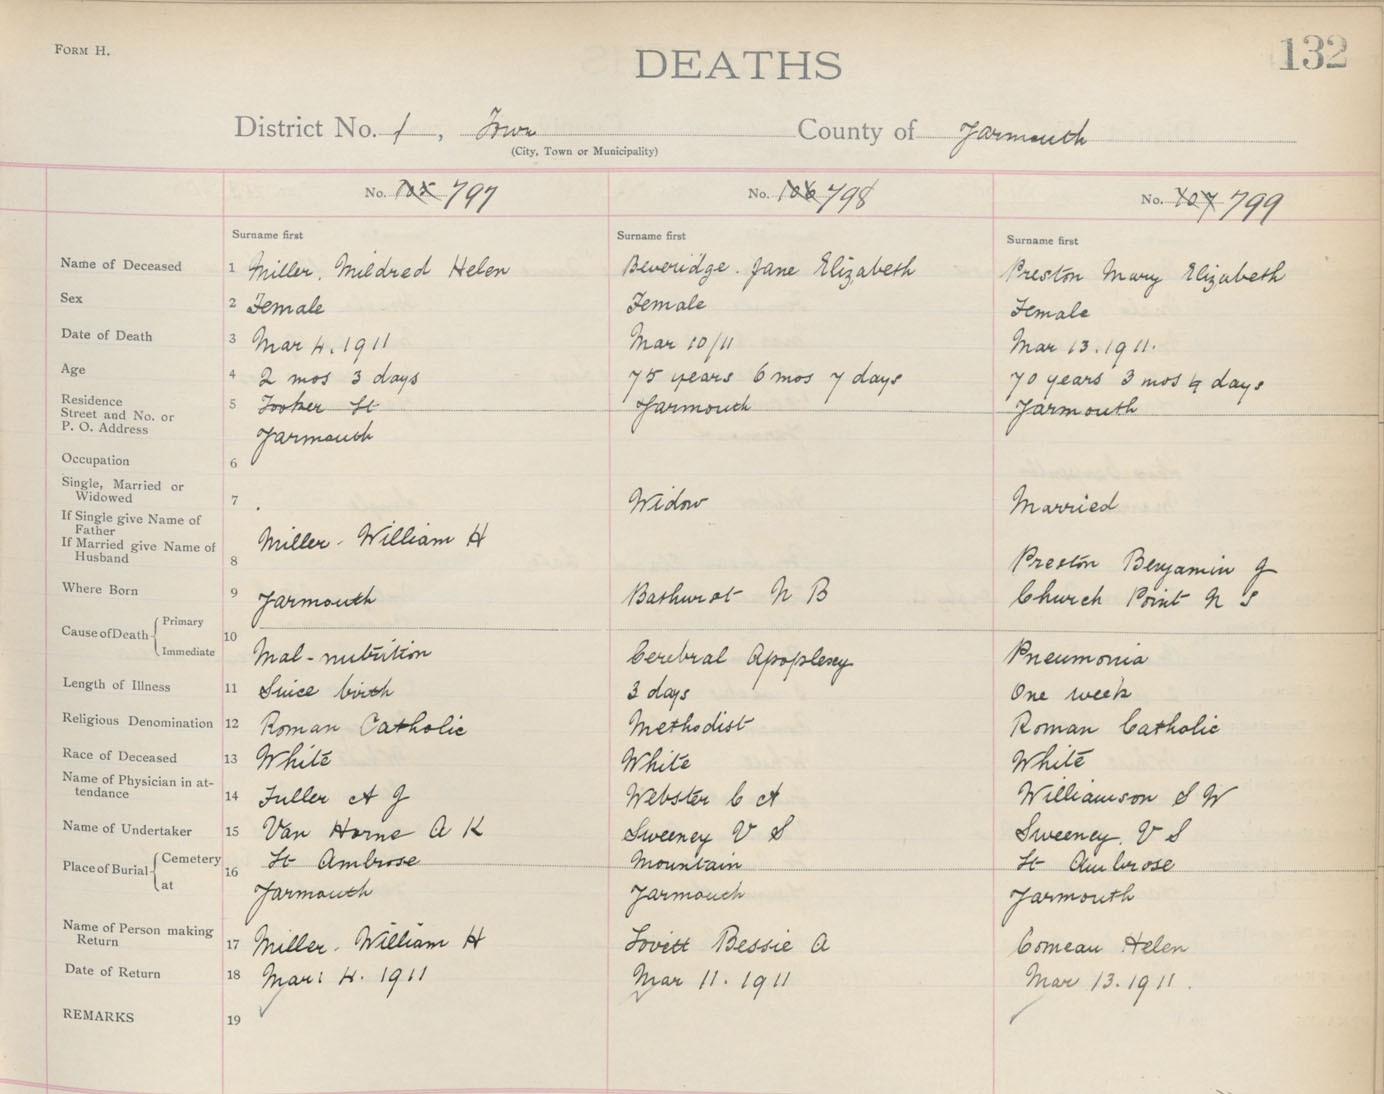 FORM H.
DEATHS
132
District No. 1, Town County of Yarmouth
(City, Town or Municipality)
No. 105 797 No. 106 798 No. 107 799
Surname first Surname first Surname first
Name of Deceased 1 Miller, Mildred Helen Beveridge. Jane Elizabeth Preston Mary Elizabeth
Sex 2 Female Female Female
Date of Death 3 Mar 4. 1911 Mar 10/11 Mar 13. 1911.
Age 4 2 mos 3 days 75 years 6 mos 7 days 70 years 3 mos 4 days
Residence 5 Tooker St Yarmouth Yarmouth
Street and No. or
P. O. Address Yarmouth
Occupation 6
Single, Married or
Widowed 7 . Widow Married
If Single give Name of
Father
If Married give Name of Miller - William H
Husband 8 Preston Benjamin J
Where Born 9 Yarmouth Bathurst N B Church Point N S
Cause of Death Primary 10
Immediate Mal-nutrition Cerebral Apoplexy Pneumonia
Length of Illness 11 Since birth 3 days One week
Religious Denomination 12 Roman Catholic Methodist Roman Catholic
Race of Deceased 13 White White White
Name of Physician in at-
tendance 14 Fuller A J Webster C A Williamson S W
Name of Undertaker 15 Van Horne A K Sweeney V S Sweeney. V S
Place of Burial Cemetery 16 St Ambrose Mountain St Ambrose
at Yarmouth Yarmouth Yarmouth
Name of Person making
Return 17 Miller - William H Lovitt Bessie A Comeau Helen
Date of Return 18 Mar: 4. 1911 Mar 11. 1911 Mar 13. 1911.
REMARKS 19